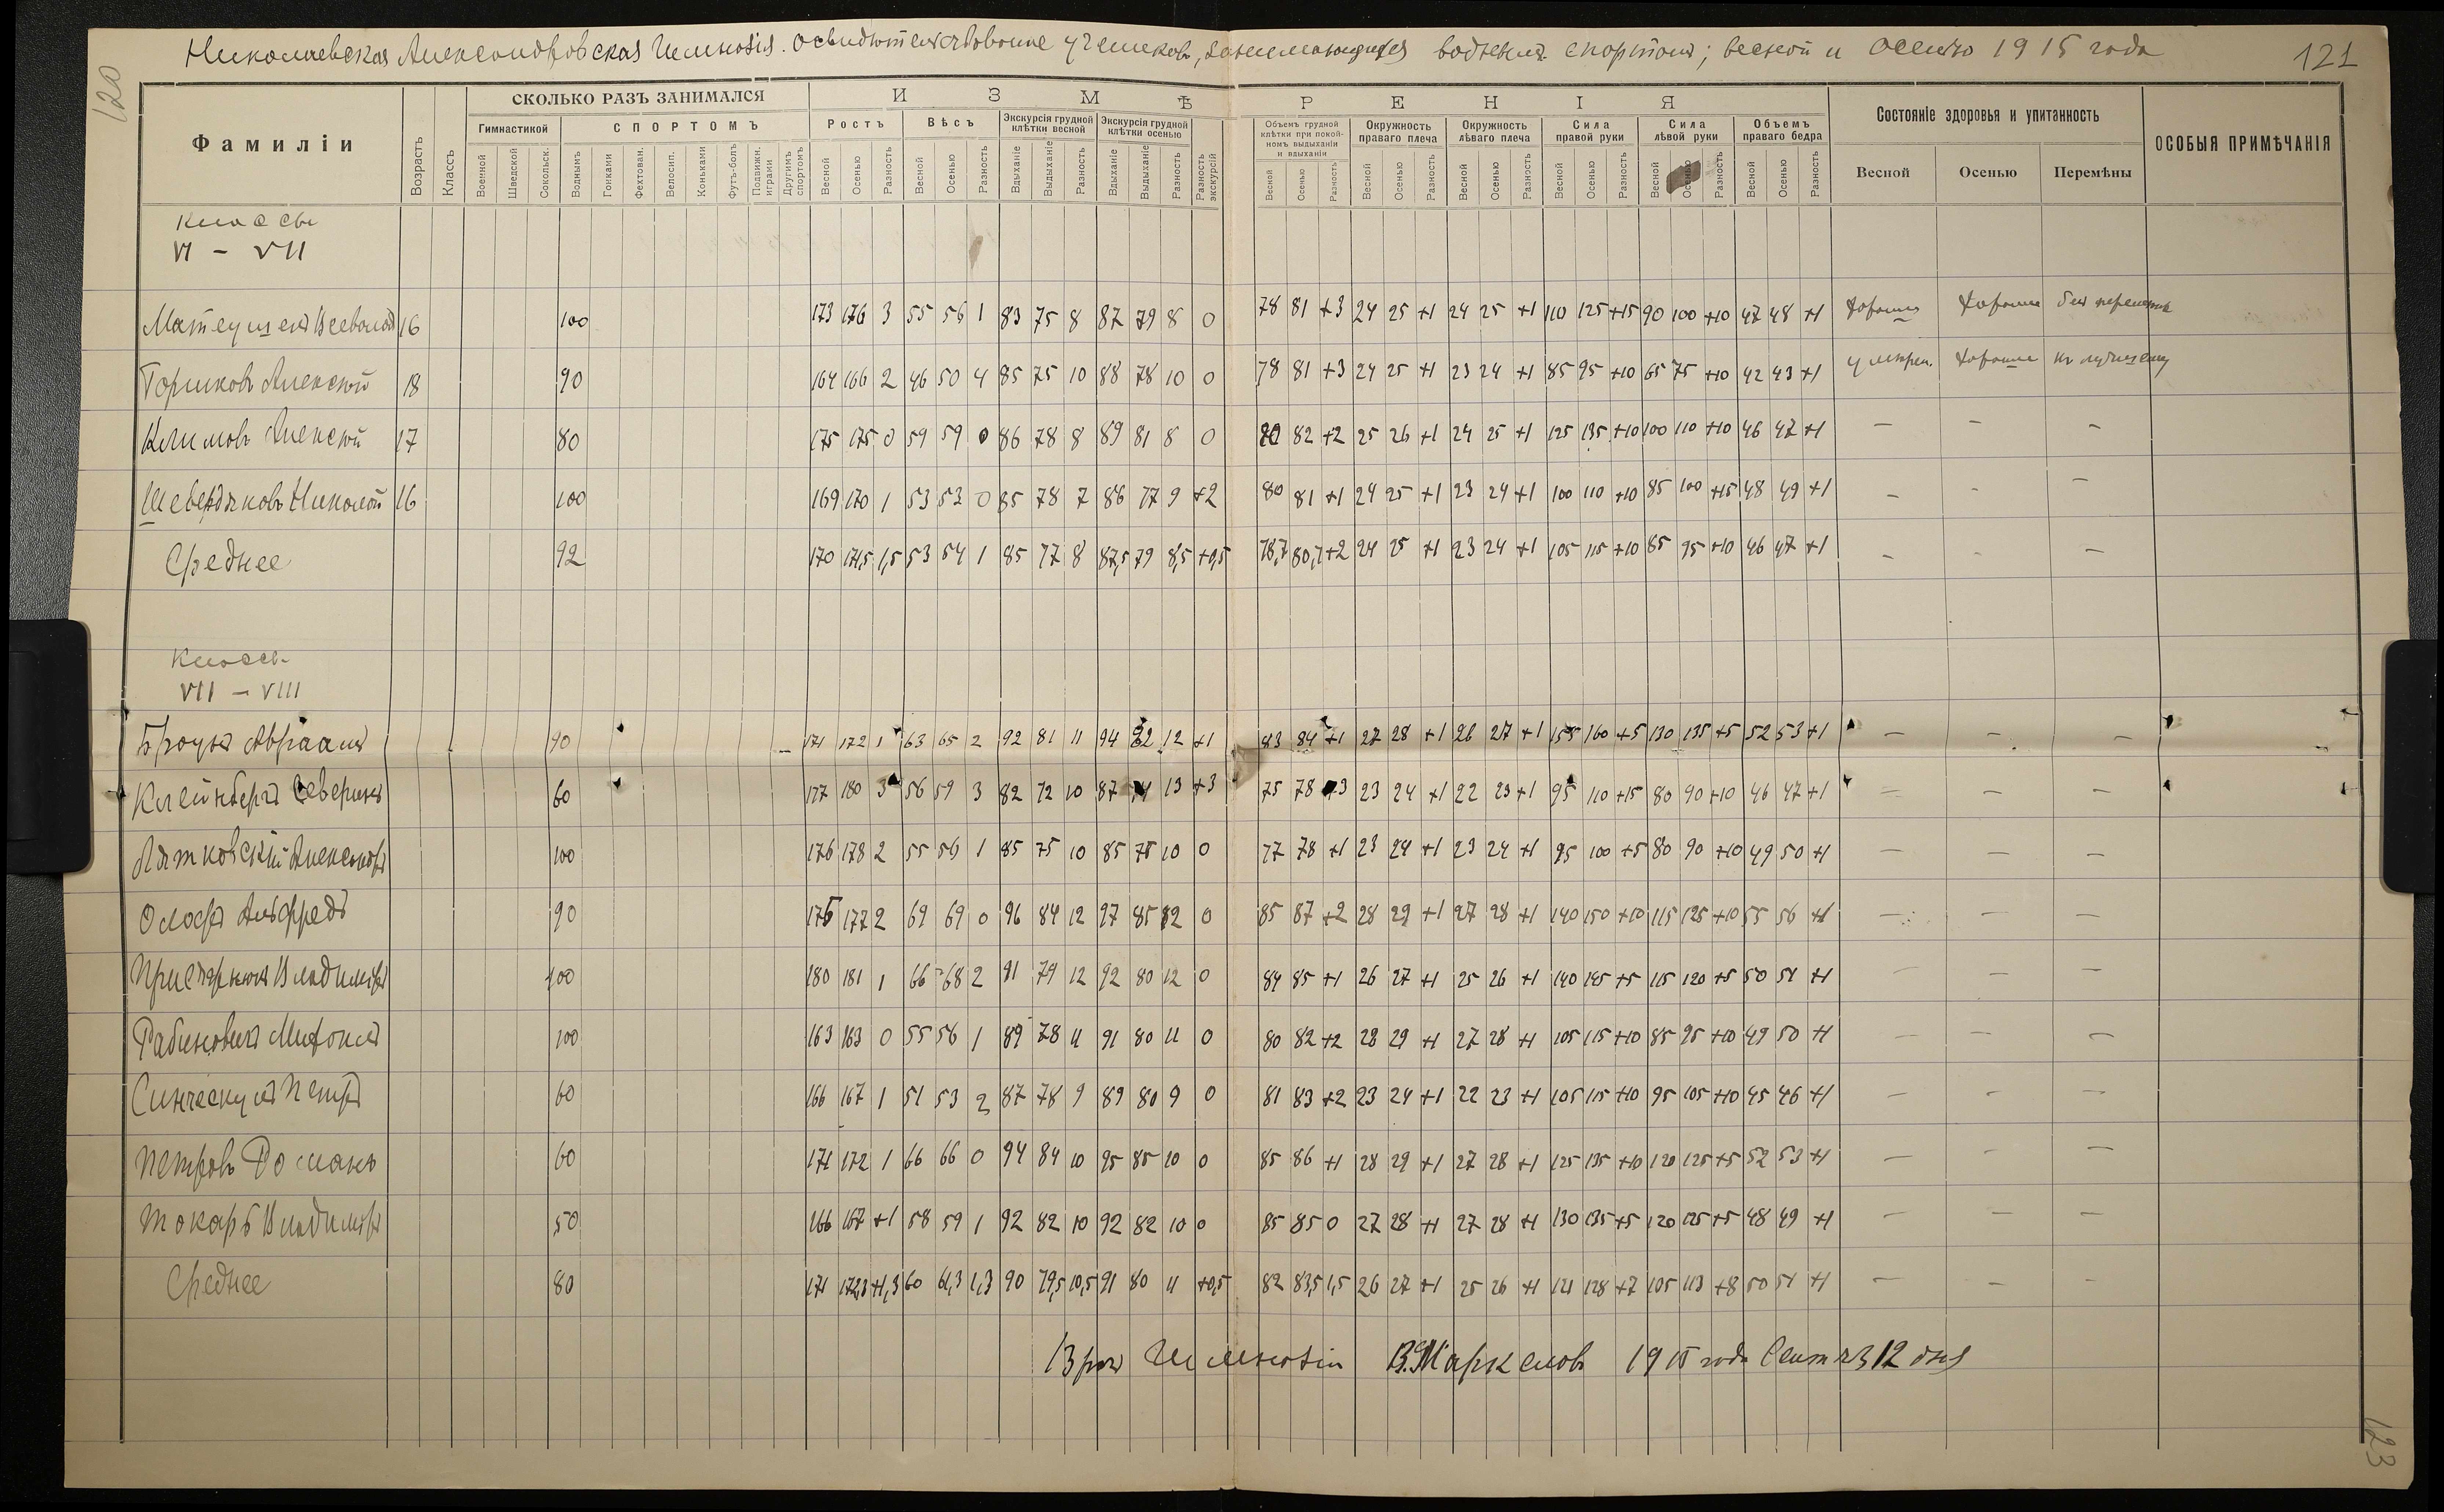 Николаевская Александровская Гимназія. Освидѣтельствованіе учениковъ, занимающихся воднымъ спортомъ; весной и осенью 1915 года
120
121
СКОЛЬКО РАЗЪ ЗАНИМАЛСЯ И З М Ѣ Р Е Н І Я
Фамиліи Возрастъ Классъ Гимнастикой СПОРТОМЪ Ростъ Вѣсъ Экскурсія грудной клѣтки весной Экскурсія грудной клѣтки осенью Разность экскурсій Объемъ грудной клѣтки при покойномъ выдыханіи и вдыханіи Окружность праваго плеча Окружность лѣваго плеча Сила правой руки Сила лѣвой руки Объемъ праваго бедра Состояніе здоровья и упитанность ОСОБЫЯ ПРИМѢЧАНІЯ
Военной Шведской Сокольск. Воднымъ Гонками Фехтован. Велосип. Коньками Футъ-болъ Подвижн. играми Другимъ спортомъ Весной Осенью Разность Весной Осенью Разность Вдыханіе Выдыханіе Разность Вдыханіе Выдыханіе Разность Весной Осенью Разность Весной Осенью Разность Весной Осенью Разность Весной Осенью Разность Весной Осенью Разность Весной Осенью Разность Весной Осенью Перемѣны
Классы
VI – VII
Всеволод 16 100 173 176 3 55 56 1 83 75 8 87 79 8 0 78 81 +3 24 25 +1 24 25 +1 110 125 +15 90 100 +10 47 48 +1 Хорошее Хорошее без перемѣнъ
Горшковъ Алексѣй 18 90 164 166 2 46 50 4 85 75 10 88 78 10 0 78 81 +3 24 25 +1 23 24 +1 85 95 +10 65 75 +10 42 43 +1 умѣрен. Хорошее къ лучшему
Климовъ Алексѣй 17 80 175 175 0 59 59 0 86 78 8 89 81 8 0 80 82 +2 25 26 +1 24 25 +1 125 135 +10 100 110 +10 46 47 +1 – – –
Шевердяковъ Николай 16 100 169 170 1 53 53 0 85 78 7 86 77 9 +2 80 81 +1 24 25 +1 23 24 +1 100 110 +10 85 100 +15 48 49 +1 – – –
Среднее 92 170 171,5 1,5 53 54 1 85 77 8 87,5 79 8,5 +0,5 78,7 80,7 +2 24 25 +1 23 24 +1 105 115 +10 85 95 +10 46 47 +1 – – –
Классы
VII – VIII
Броунъ Авраамъ 90 171 172 1 63 65 2 92 81 11 94 82 12 +1 83 84 +1 27 28 +1 26 27 +1 155 160 +5 130 135 +5 52 53 +1 – – –
Клейнбергъ Северинъ 60 177 180 3 56 59 3 82 72 10 87 74 13 +3 75 78 +3 23 24 +1 22 23 +1 95 110 +15 80 90 +10 46 47 +1 – – –
Лятковскій Александръ 100 176 178 2 55 56 1 85 75 10 85 75 10 0 77 78 +1 23 24 +1 23 24 +1 95 100 +5 80 90 +10 49 50 +1 – – –
Олофъ Альфредъ 90 175 177 2 69 69 0 96 84 12 97 85 12 0 85 87 +2 28 29 +1 27 28 +1 140 150 +10 115 125 +10 55 56 +1 – – –
Владиміръ 100 180 181 1 66 68 2 91 79 12 92 80 12 0 84 85 +1 26 27 +1 25 26 +1 140 145 +5 115 120 +5 50 51 +1 – – –
Рабиновичъ 100 163 163 0 55 56 1 89 78 11 91 80 11 0 80 82 +2 28 29 +1 27 28 +1 105 115 +10 85 95 +10 49 50 +1 – – –
Петръ 60 166 167 1 51 53 2 87 78 9 89 80 9 0 81 83 +2 23 24 +1 22 23 +1 105 115 +10 95 105 +10 45 46 +1 – – –
Петровъ Романъ 60 171 172 1 66 66 0 94 84 10 95 85 10 0 85 86 +1 28 29 +1 27 28 +1 125 135 +10 120 125 +5 52 53 +1 – – –
Токарь Владиміръ 50 166 167 +1 58 59 1 92 82 10 92 82 10 0 85 85 0 27 28 +1 27 28 +1 130 135 +5 120 125 +5 48 49 +1 – – –
Среднее 80 171 172,3 +1,3 60 61,3 1,3 90 79,5 10,5 91 80 11 +0,5 82 83,5 1,5 26 27 +1 25 26 +1 121 128 +7 105 113 +8 50 51 +1 – – –
Врач Гимназіи В. Маркеловъ 1915 года Сентяб 12 дня
123